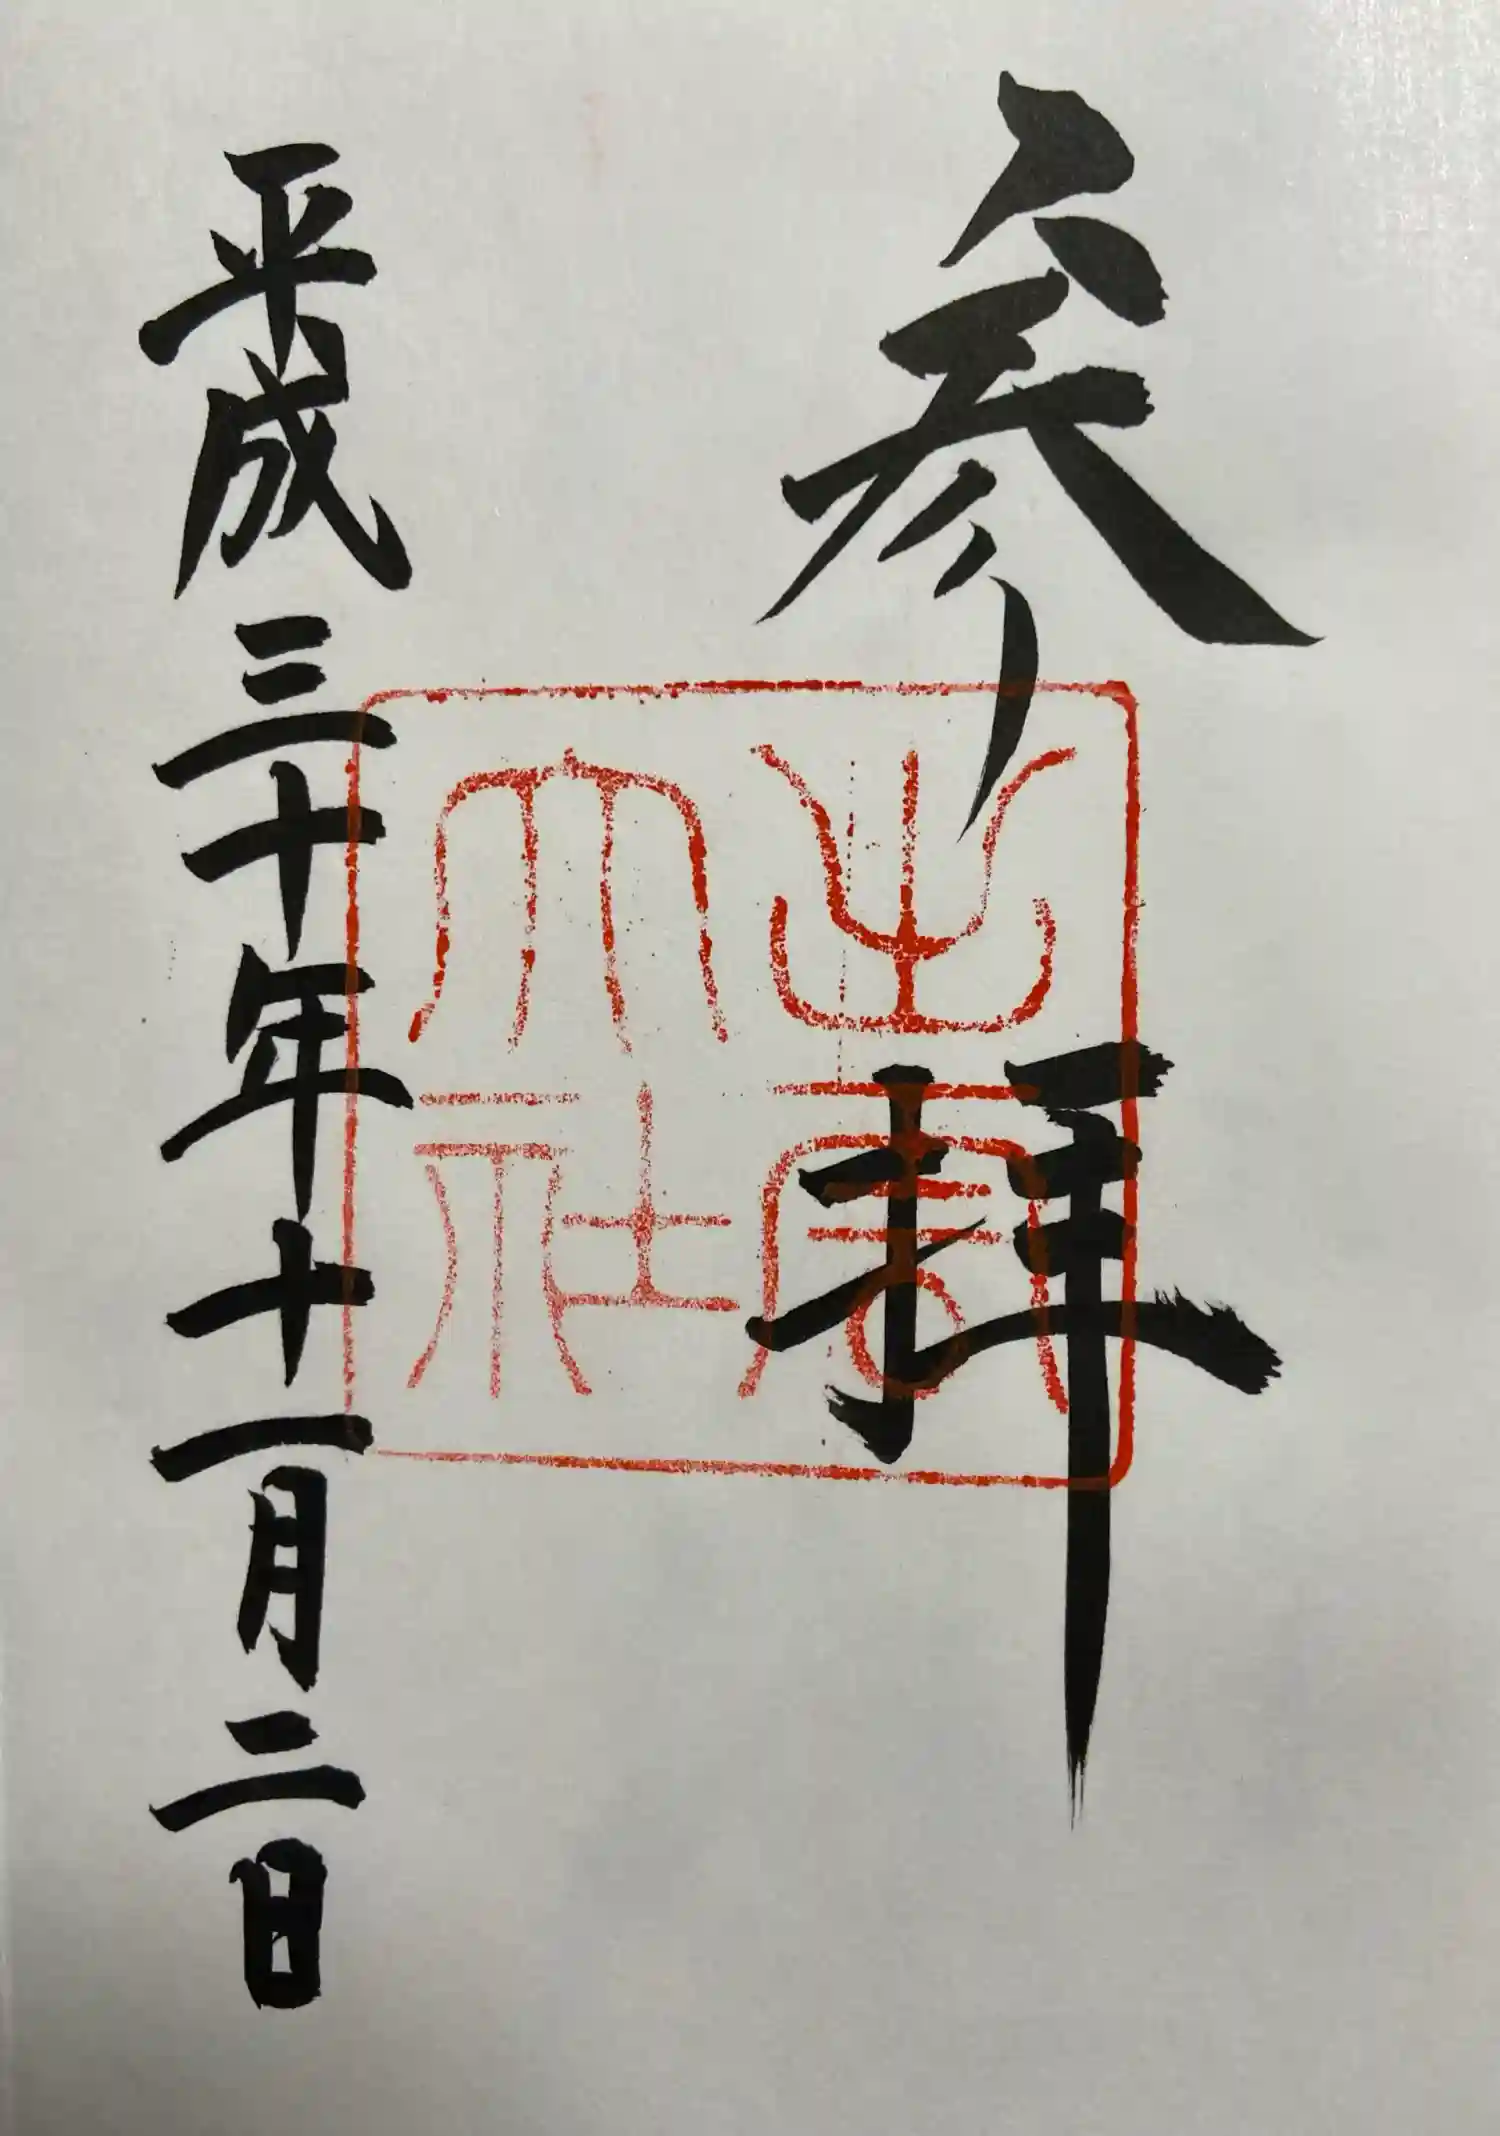 参拝
出雲大社
平成三十年十一月二日